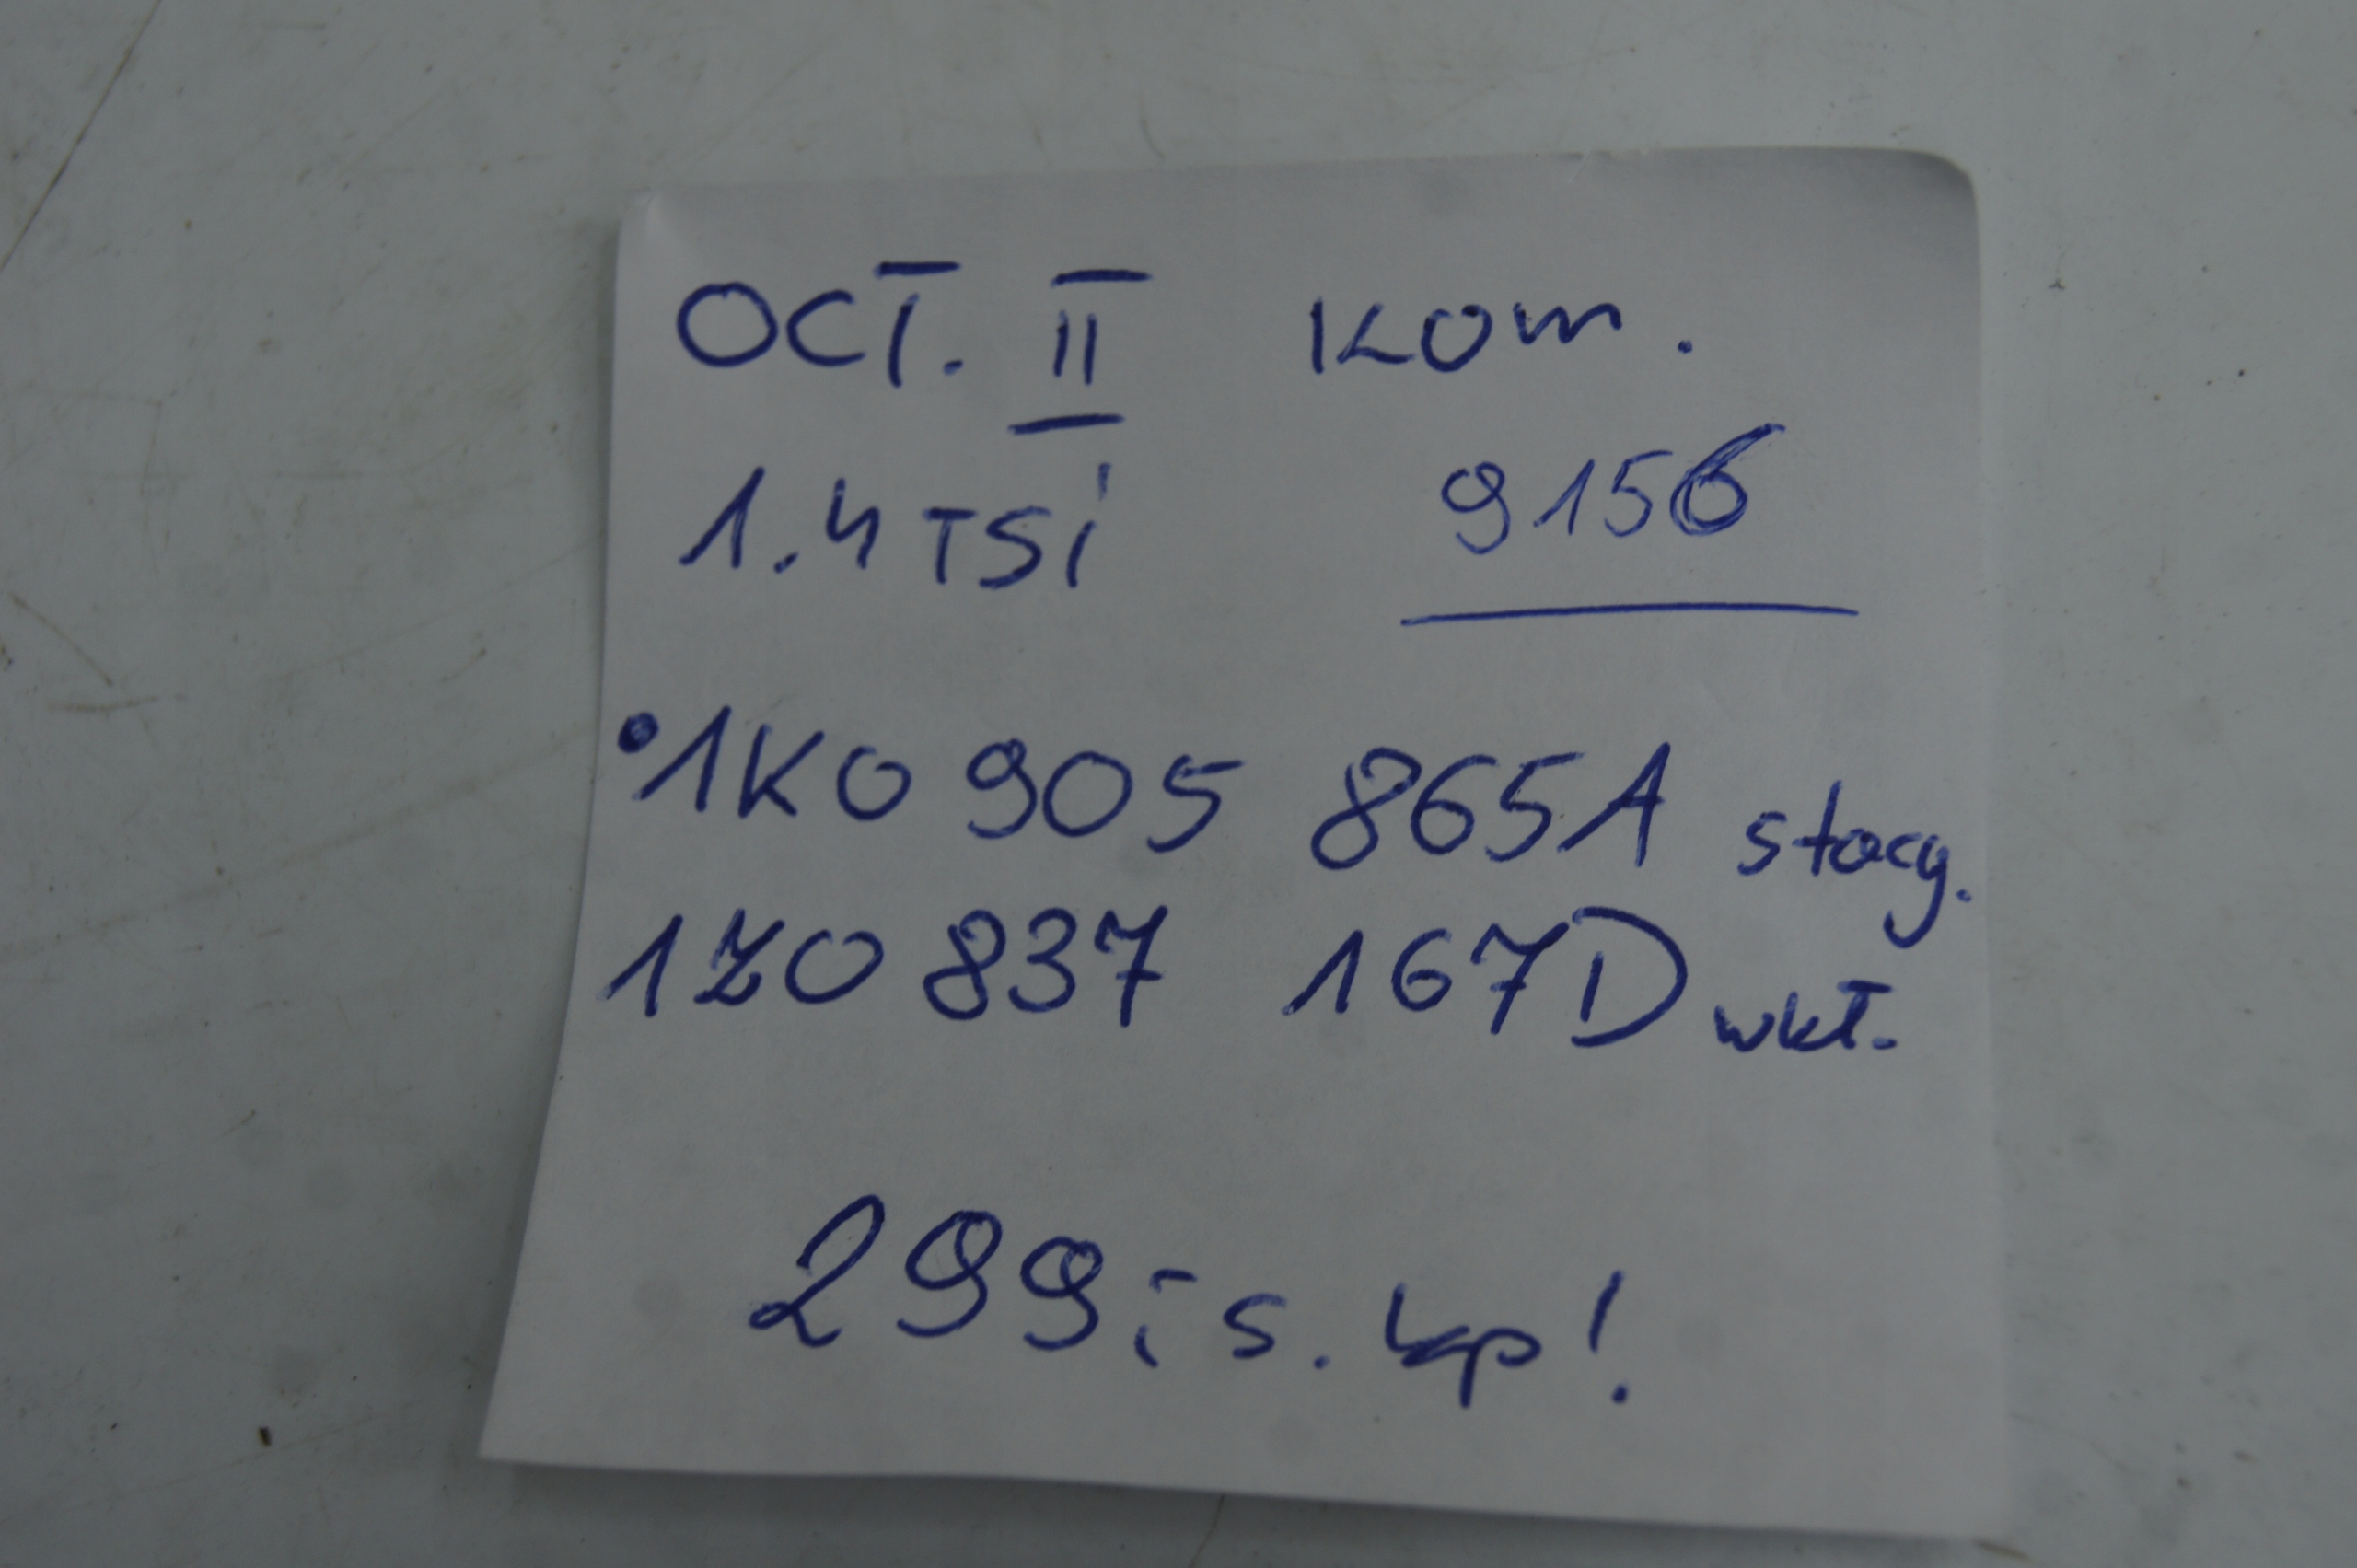 OCT. II kom.
1.4 TSi 9156
•1K0 905 865A stacy.
1Z0 837 167D wkł.
299,- s. kp!